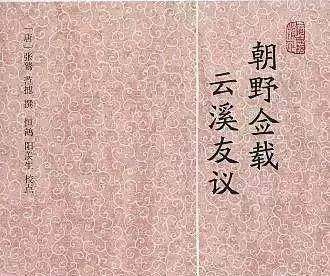 朝野佥载
云溪友议
〔唐〕张鷟 范摅 撰 恒鹤 阳羡生 校点